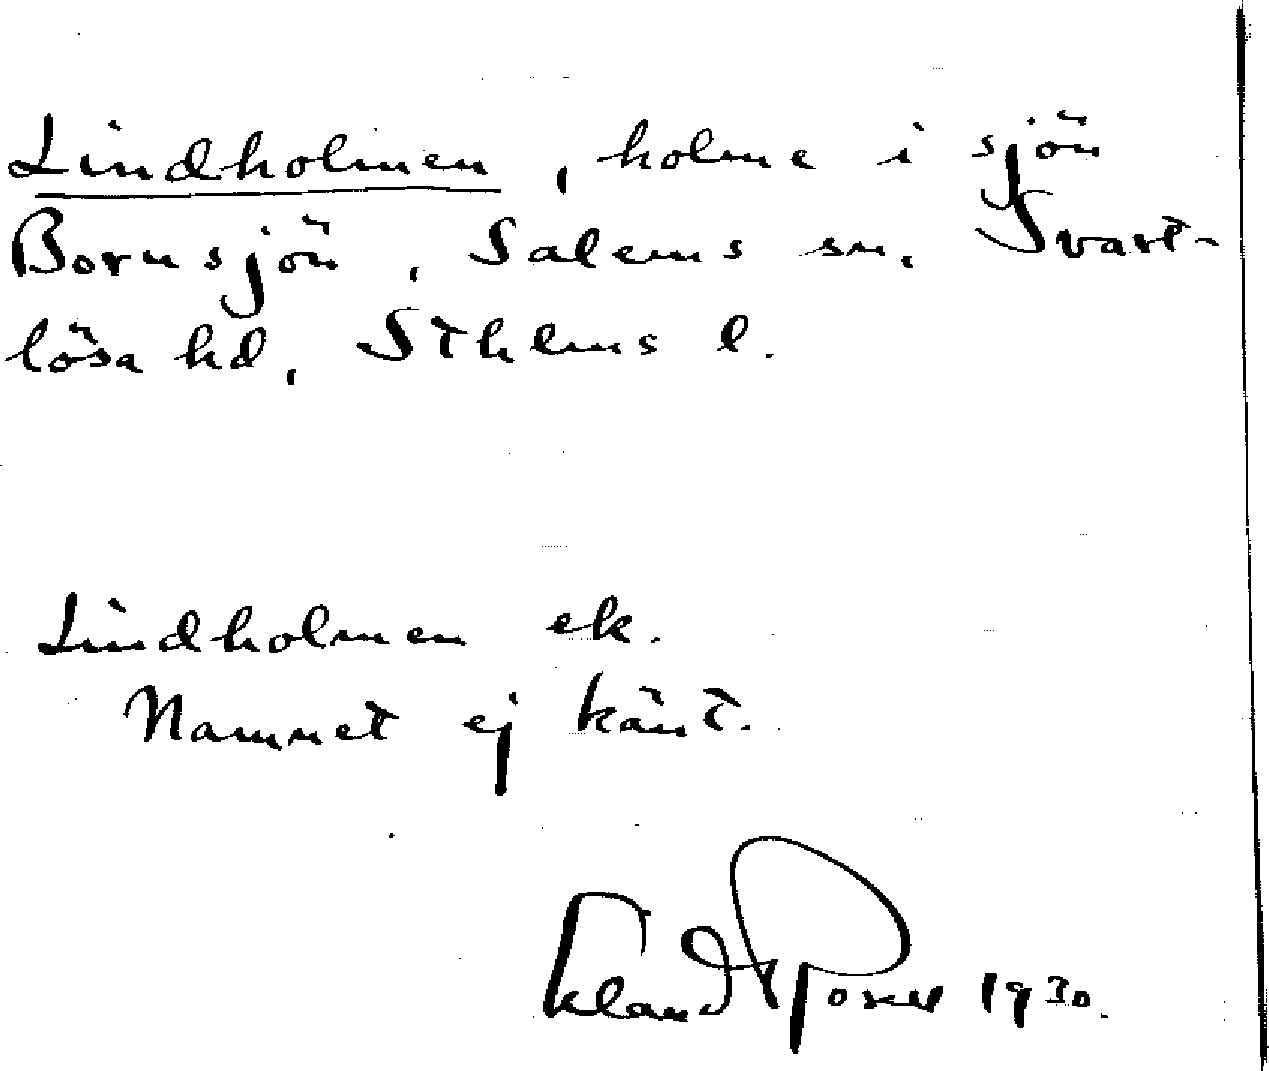 Lindholmen, holme i sjön
Bornsjön, Salems sn, Svart-
lösa hd, Sthlms l.
Lindholmen ek.
Namnet ej känt.
1930.